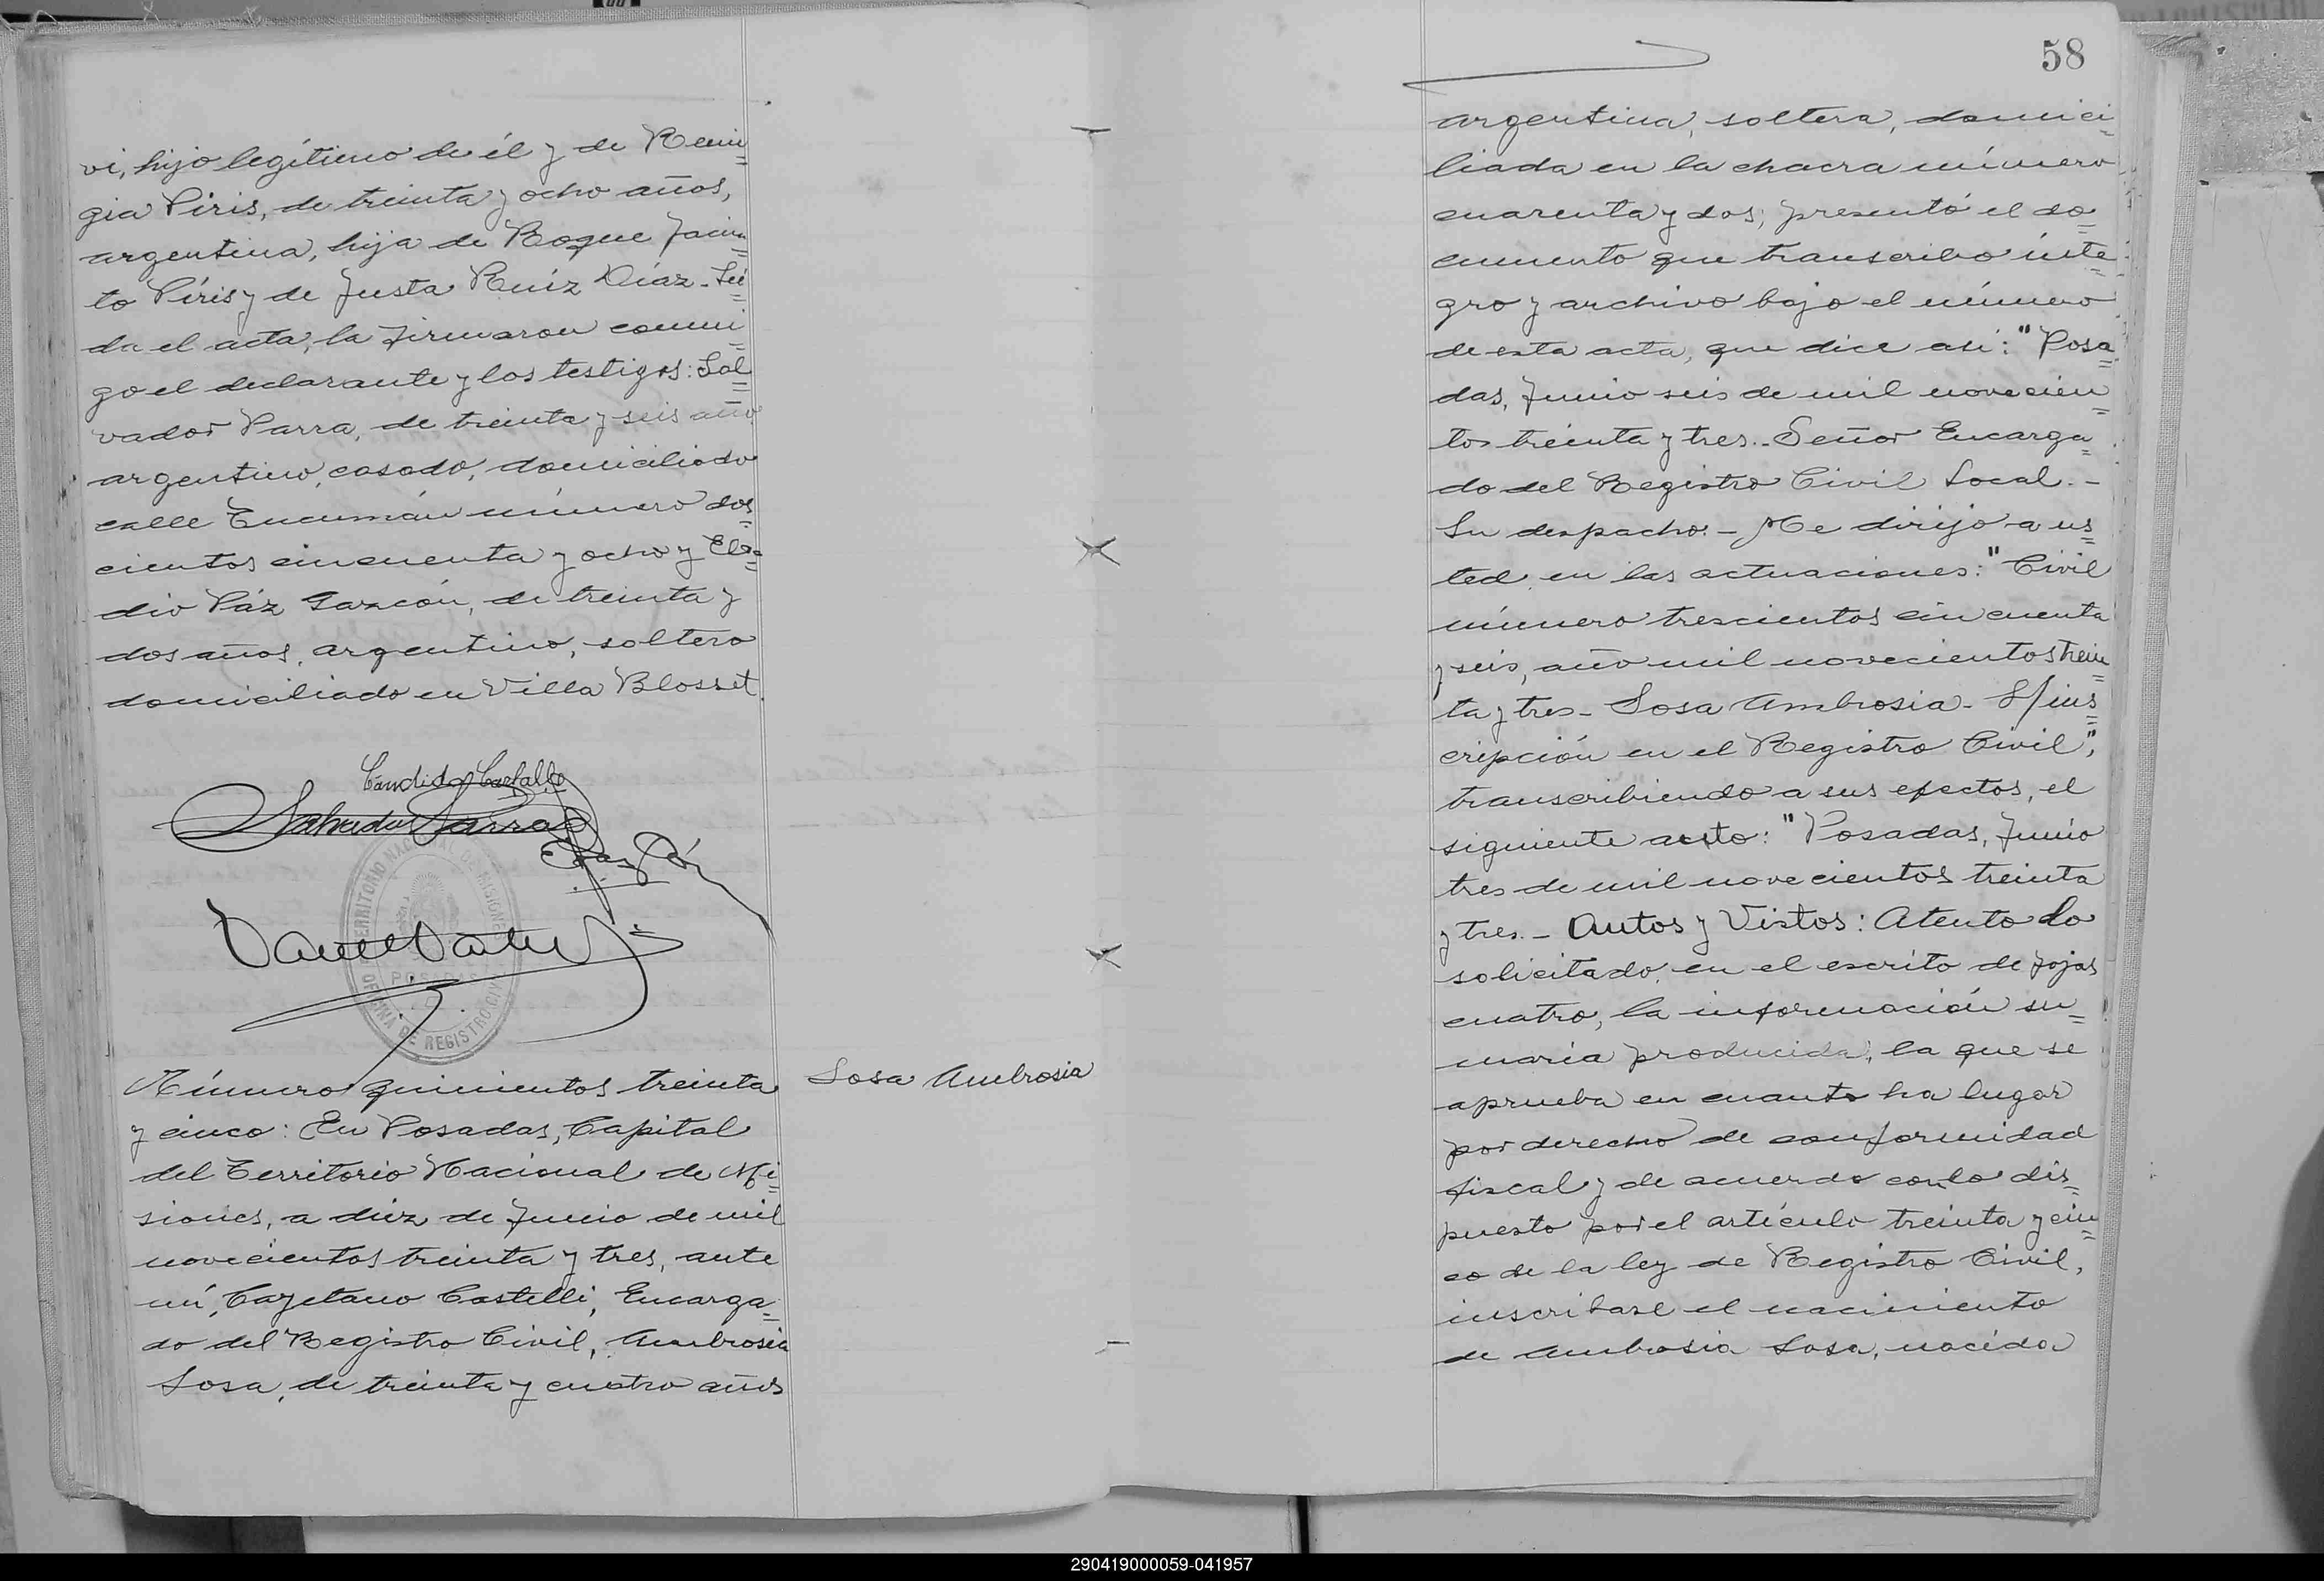 vi, hijo legítimo de él y de Remi=
gia Píris, de treinta y ocho años,
argentina, hija de Roque Jacin=
to Píris y de Justa Ruíz Díaz.- Leí=
da el acta, la firmaron conmi=
go el declarante y los testigos: Sal=
vador Parra, de treinta y seis años
argentino, casado, domiciliado
calle Tucumán número dos=
cientos cincuenta y ocho y Ela=
dio Páz Garzón, de treinta y
dos años, argentino, soltero
domiciliado en Villa Blosset.
Cándido Carballo
Salvador Parra
TERRITORIO NACIONAL DE MISIONES
POSADAS
OFICINA DE REGISTRO CIVIL
Número quinientos treinta
y cinco: En Posadas, Capital
del Territorio Nacional de Mi=
siones, a diez de Junio de mil
novecientos treinta y tres, ante
mí, Cayetano Castelli, Encarga=
do del Registro Civil, Ambrosia
Sosa, de treinta y cuatro años
Sosa Ambrosia
58
argentina, soltera, domici=
liada en la chacra número
cuarenta y dos; presentó el do=
cumento que transcribo ínte=
gro y archivo bajo el número
de esta acta, que dice así: "Posa=
das, Junio seis de mil novecien=
tos treinta y tres.- Señor Encarga=
do del Registro Civil Local.-
Su despacho.- Me dirijo a us=
ted en las actuaciones: "Civil
número trescientos cincuenta
y seis, año mil novecientos trein=
ta y tres- Sosa Ambrosia- S/ins=
cripción en el Registro Civil",
transcribiendo a sus efectos, el
siguiente auto: "Posadas, Junio
tres de mil novecientos treinta
y tres.- Autos y Vistos: Atento lo
solicitado en el escrito de fojas
cuatro, la información su=
maria producida, la que se
aprueba en cuanto ha lugar
por derecho de conformidad
fiscal y de acuerdo con lo dis=
puesto por el artículo treinta y cin=
co de la ley de Registro Civil,
inscríbase el nacimiento
de Ambrosia Sosa, nacida
290419000059-041957